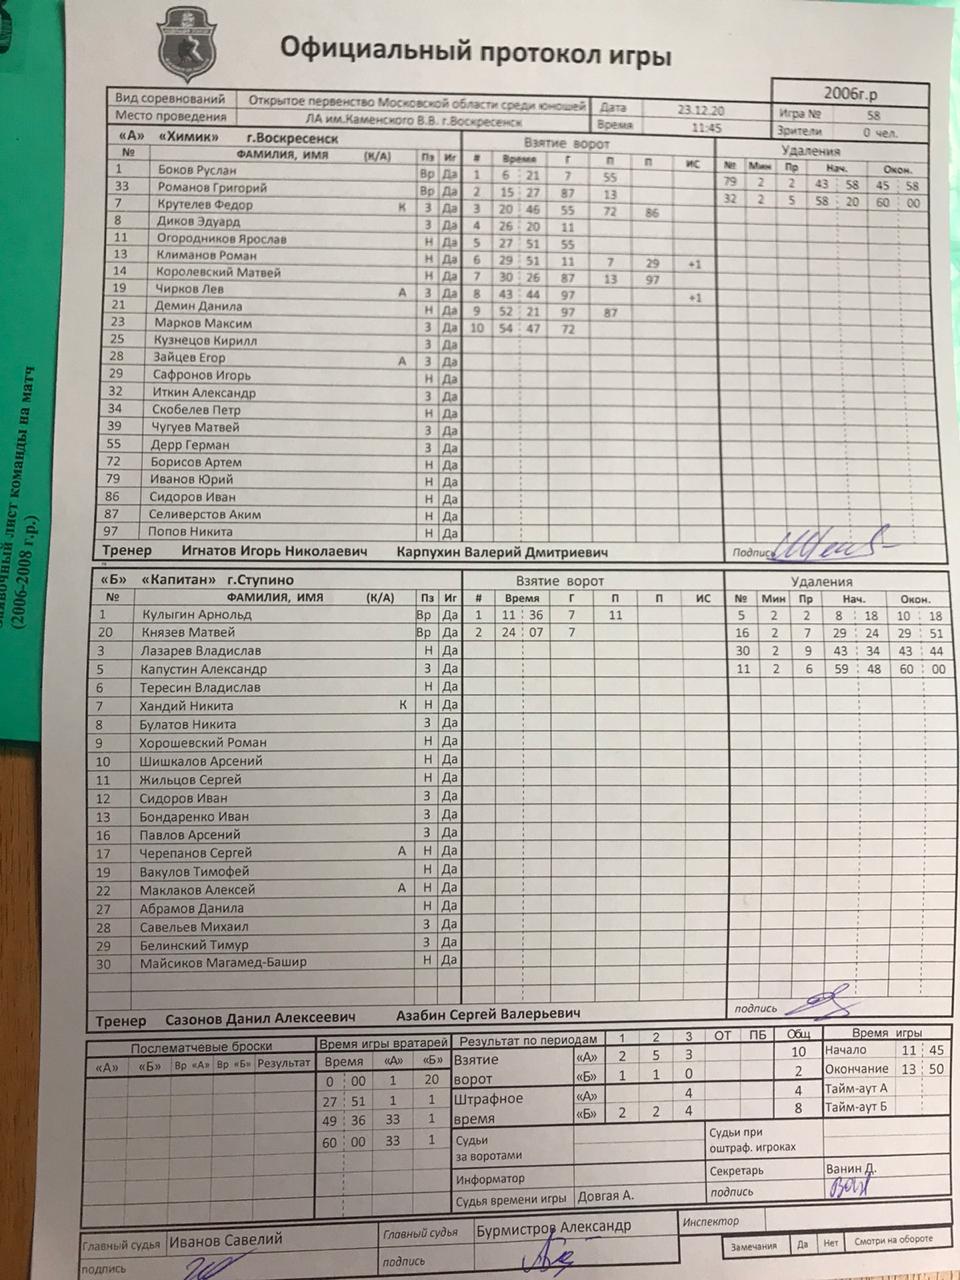 Официальный протокол игры
2006г.р
Вид соревнований Открытое первенство Московской области среди юношей Дата 23.12.20 Игра № 58
Место проведения ЛА им.Каменского В.В. г.Воскресенск Время 11:45 Зрители 0 чел.
«А» «Химик» г.Воскресенск Взятие ворот Удаления
№ ФАМИЛИЯ, ИМЯ (К/А) Пз Иг # Время Г П П ИС № Мин Пр Нач. Окон.
1 Боков Руслан Вр Да 1 6 21 7 55 79 2 2 43 58 45 58
33 Романов Григорий Вр Да 2 15 27 87 13 32 2 5 58 20 60 00
7 Крутелев Федор К З Да 3 20 46 55 72 86
8 Диков Эдуард З Да 4 26 20 11
11 Огородников Ярослав Н Да 5 27 51 55
13 Климанов Роман Н Да 6 29 51 11 7 29 +1
14 Королевский Матвей Н Да 7 30 26 87 13 97
19 Чирков Лев А З Да 8 43 44 97 +1
21 Демин Данила Н Да 9 52 21 97 87
23 Марков Максим З Да 10 54 47 72
25 Кузнецов Кирилл З Да
28 Зайцев Егор А З Да
29 Сафронов Игорь Н Да
32 Иткин Александр З Да
34 Скобелев Петр Н Да
39 Чугуев Матвей З Да
55 Дерр Герман З Да
72 Борисов Артем Н Да
79 Иванов Юрий Н Да
86 Сидоров Иван Н Да
87 Селиверстов Аким Н Да
97 Попов Никита Н Да
Тренер Игнатов Игорь Николаевич Карпухин Валерий Дмитриевич Подпись
«Б» «Капитан» г.Ступино Взятие ворот Удаления
№ ФАМИЛИЯ, ИМЯ (К/А) Пз Иг # Время Г П П ИС № Мин Пр Нач. Окон.
1 Кулыгин Арнольд Вр Да 1 11 36 7 11 5 2 2 8 18 10 18
20 Князев Матвей Вр Да 2 24 07 7 16 2 7 29 24 29 51
3 Лазарев Владислав Н Да 30 2 9 43 34 43 44
5 Капустин Александр З Да 11 2 6 59 48 60 00
6 Тересин Владислав Н Да
7 Хандий Никита К Н Да
8 Булатов Никита З Да
9 Хорошевский Роман Н Да
10 Шишкалов Арсений Н Да
11 Жильцов Сергей Н Да
12 Сидоров Иван З Да
13 Бондаренко Иван З Да
16 Павлов Арсений З Да
17 Черепанов Сергей А Н Да
19 Вакулов Тимофей Н Да
22 Маклаков Алексей А Н Да
27 Абрамов Данила Н Да
28 Савельев Михаил З Да
29 Белинский Тимур З Да
30 Майсиков Магамед-Башир Н Да
Тренер Сазонов Данил Алексеевич Азабин Сергей Валерьевич подпись
Послематчевые броски Время игры вратарей Результат по периодам 1 2 3 ОТ ПБ Общ Время игры
«А» «Б» Вр «А» Вр «Б» Результат Время «А» «Б» Взятие ворот «А» 2 5 3 10 Начало 11 45
0 00 1 20 «Б» 1 1 0 2 Окончание 13 50
27 51 1 1 Штрафное время «А» 4 4 Тайм-аут А
49 36 33 1 «Б» 2 2 4 8 Тайм-аут Б
60 00 33 1 Судьи за воротами Судьи при оштраф. игроках
Информатор Секретарь Ванин Д.
Судья времени игры Довгая А. подпись
Главный судья Иванов Савелий Главный судья Бурмистров Александр Инспектор
подпись подпись Замечания Да Нет Смотри на обороте
заявочный лист команды на матч
(2006-2008 г.р.)